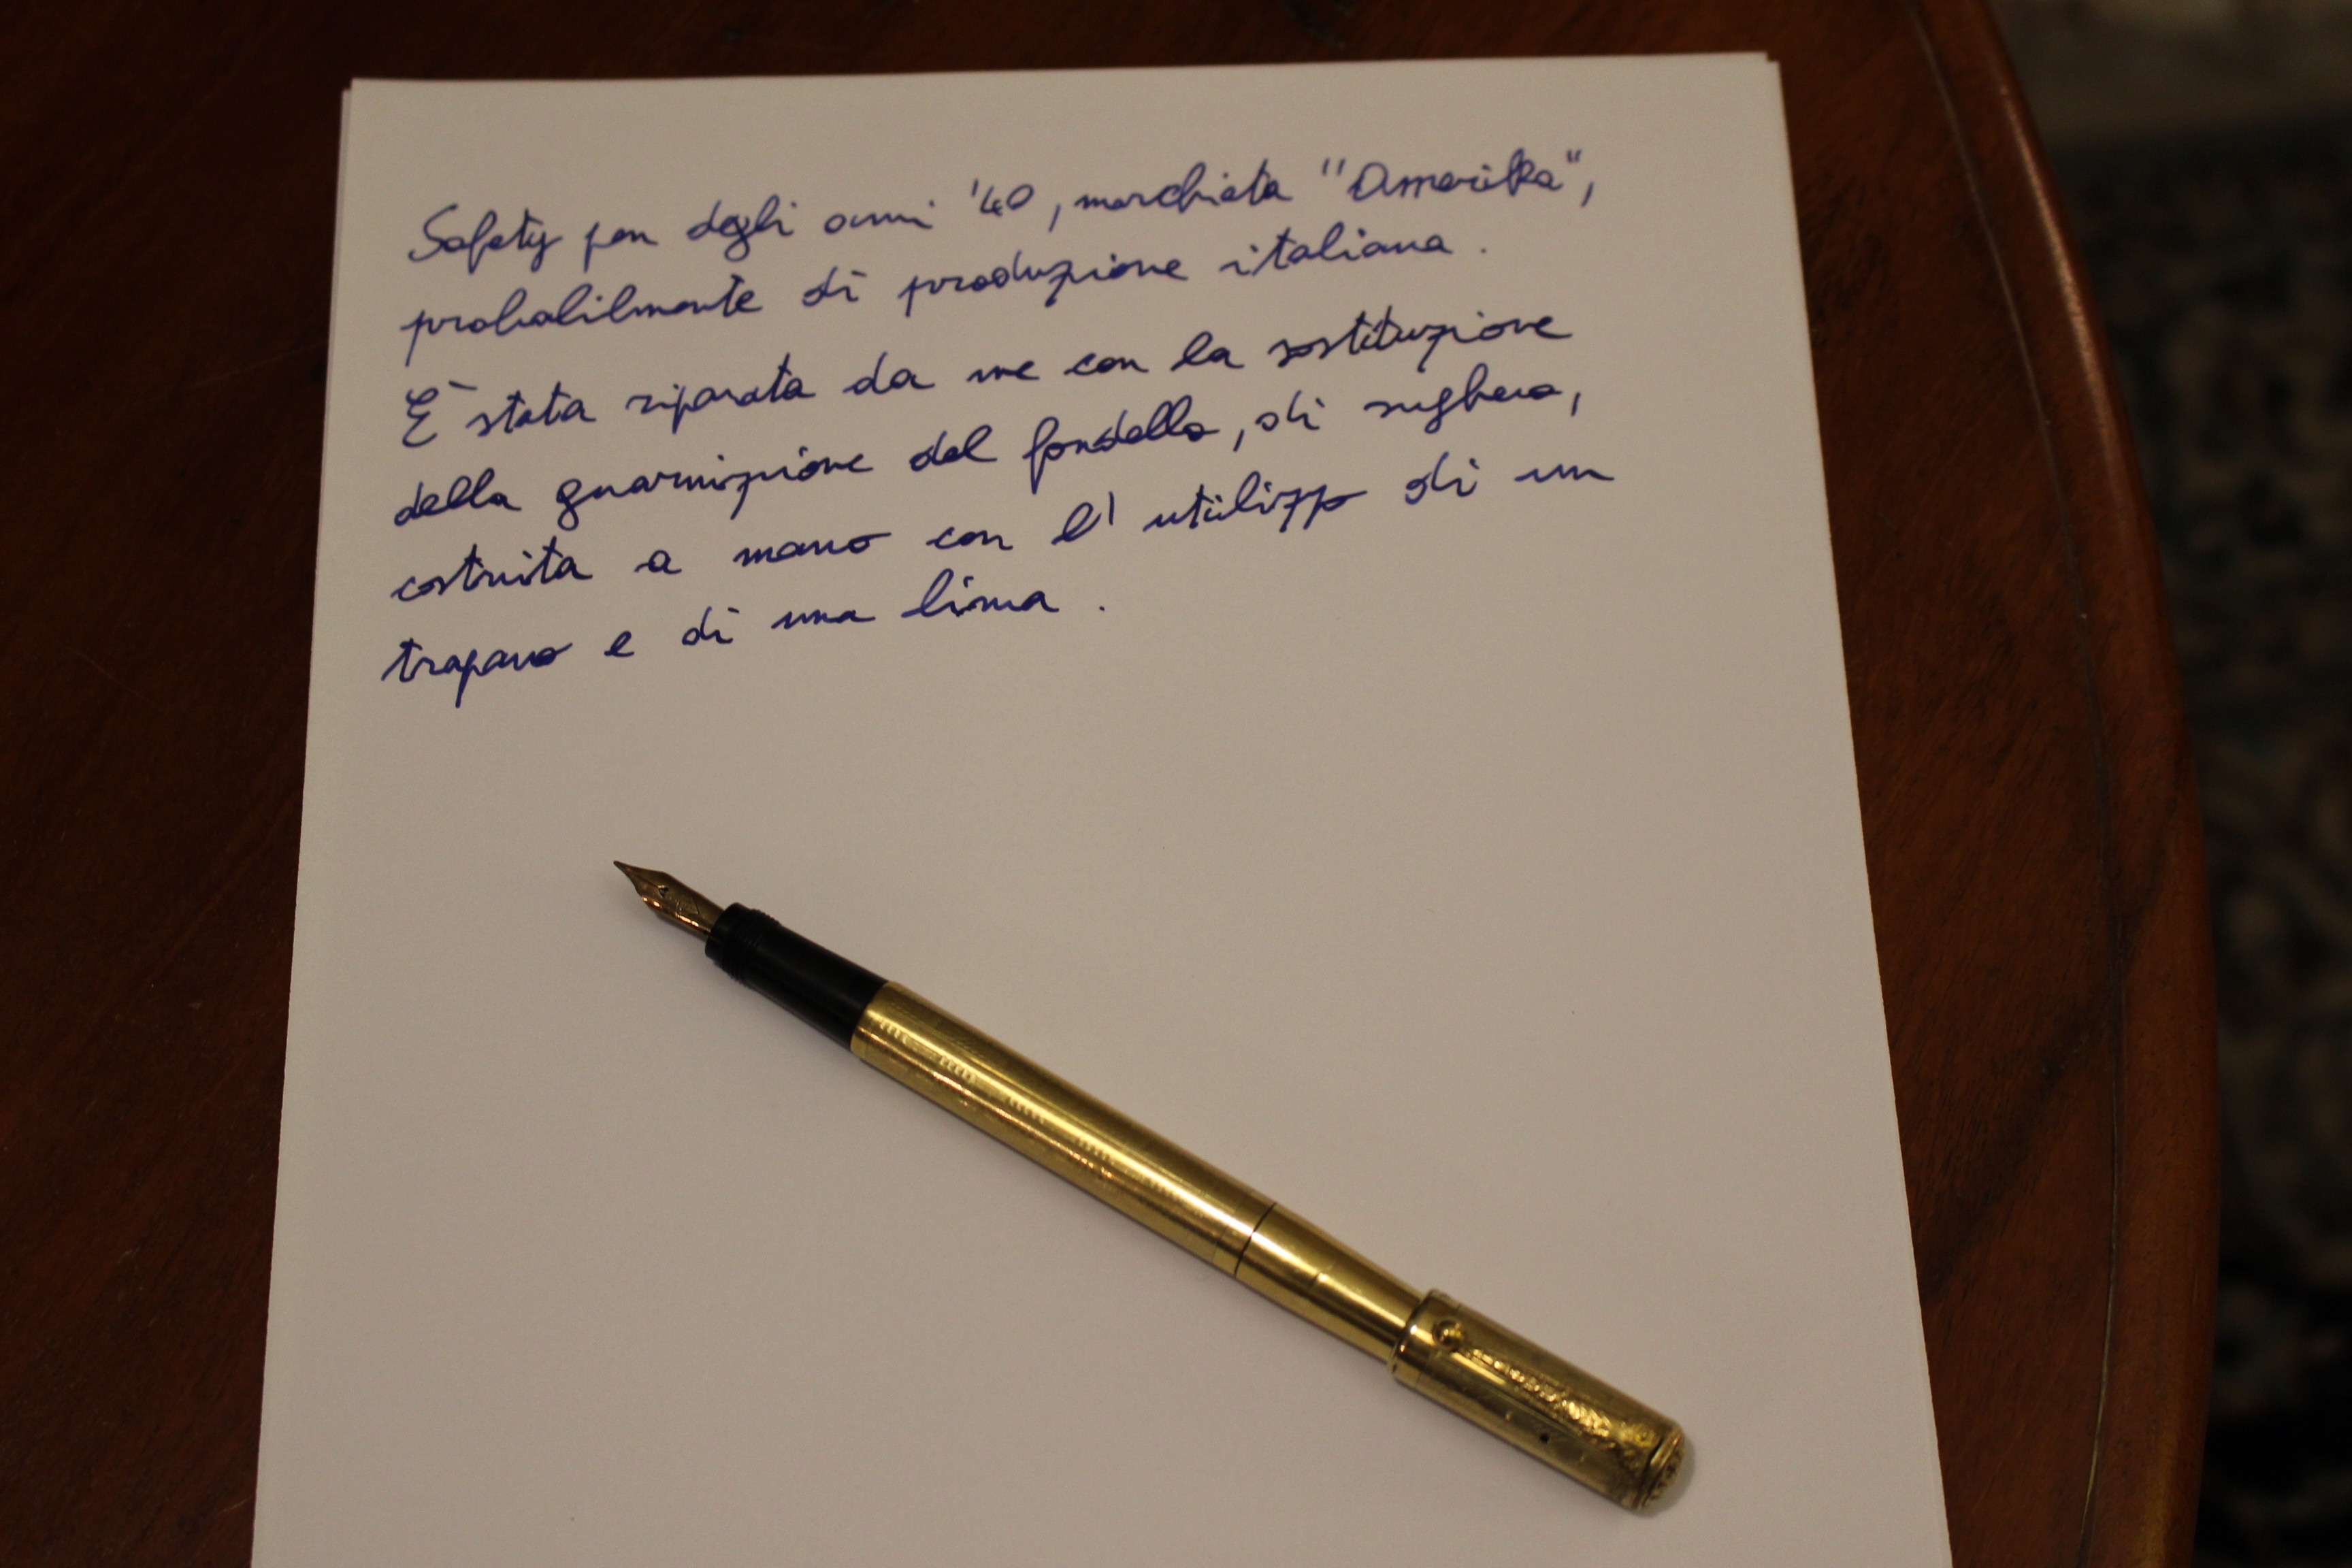 Safety pen degli anni '40, marchiata "Amerika",
probabilmente di produzione italiana.
È stata riparata da me con la sostituzione
della guarnizione del fondello, di sughero,
costruita a mano con l'utilizzo di un
trapano e di una lima.